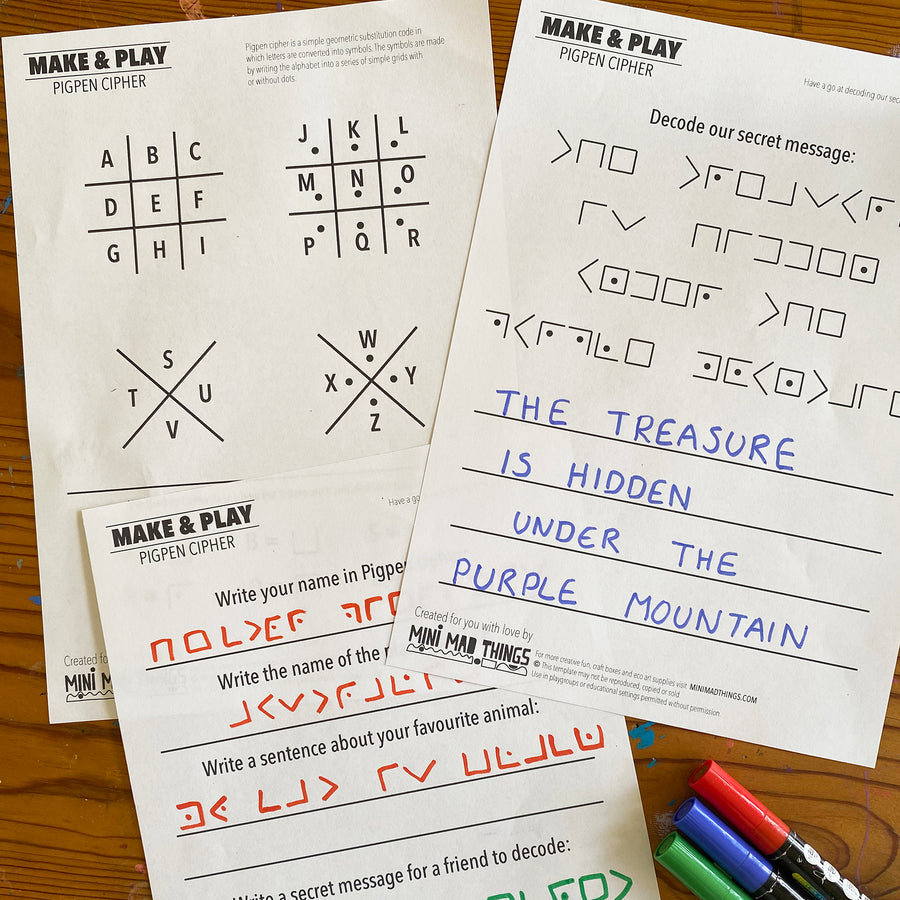 MAKE & PLAY
PIGPEN CIPHER
Pigpen cipher is a simple geometric substitution code in
which letters are converted into symbols. The symbols are made
by writing the alphabet into a series of simple grids with
or without dots.
A B C
D E F
G H I
J K L
M N O
P Q R
S
T U
V
W
X Y
Z
Created fo
MINI M
MAKE & PLAY
PIGPEN CIPHER
Have a go at decoding our sec
Decode our secret message:
THE TREASURE
IS HIDDEN
UNDER THE
PURPLE MOUNTAIN
Created for you with love by
MINI MAD THINGS
For more creative fun, craft boxes and eco art supplies visit MINIMADTHINGS.COM
© This template may not be reproduced, copied or sold
Use in playgroups or educational settings permitted without permission.
MAKE & PLAY
PIGPEN CIPHER
Have a go
Write your name in Pigpe
Write the name of the
Write a sentence about your favourite animal:
Write a secret message for a friend to decode: